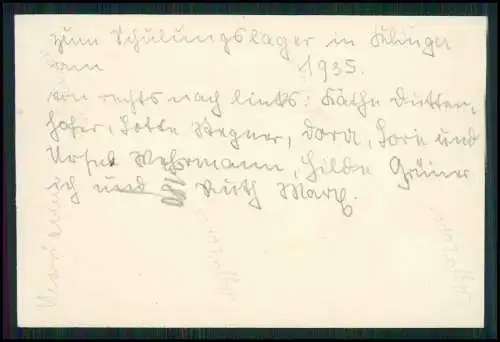 zum Schulungslager in
am 1935.
von rechts nach links: Käthe Dutten,
hofer, Lotte Wegner, Dora, Lore und
Ursel Wehrmann, Hilde Grüner
ich und Ruth Marx.